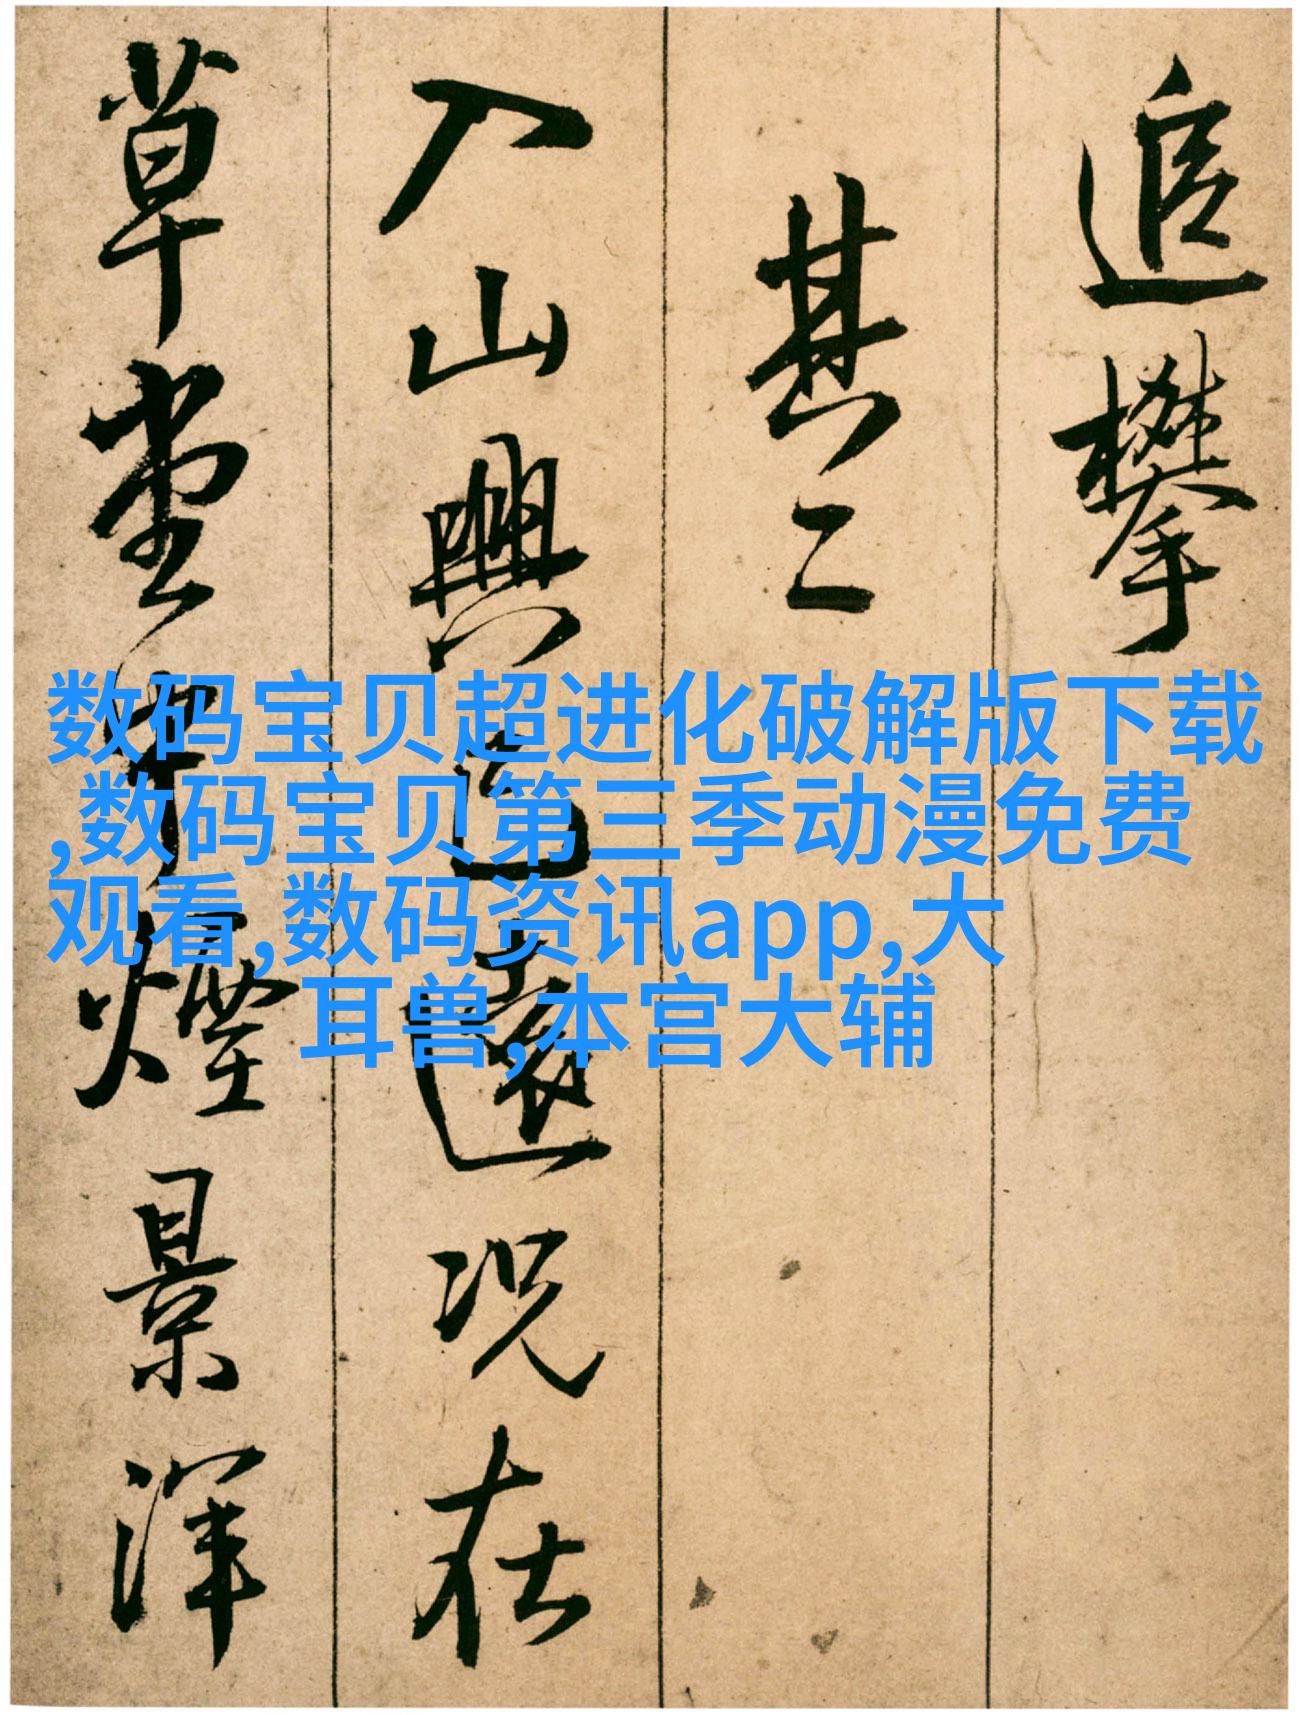 追攀
其二
入山興已遠况在
草堂中煙景渾
数码宝贝超进化破解版下载
,数码宝贝第三季动漫免费
观看,数码资讯app,大
耳兽,本宫大辅